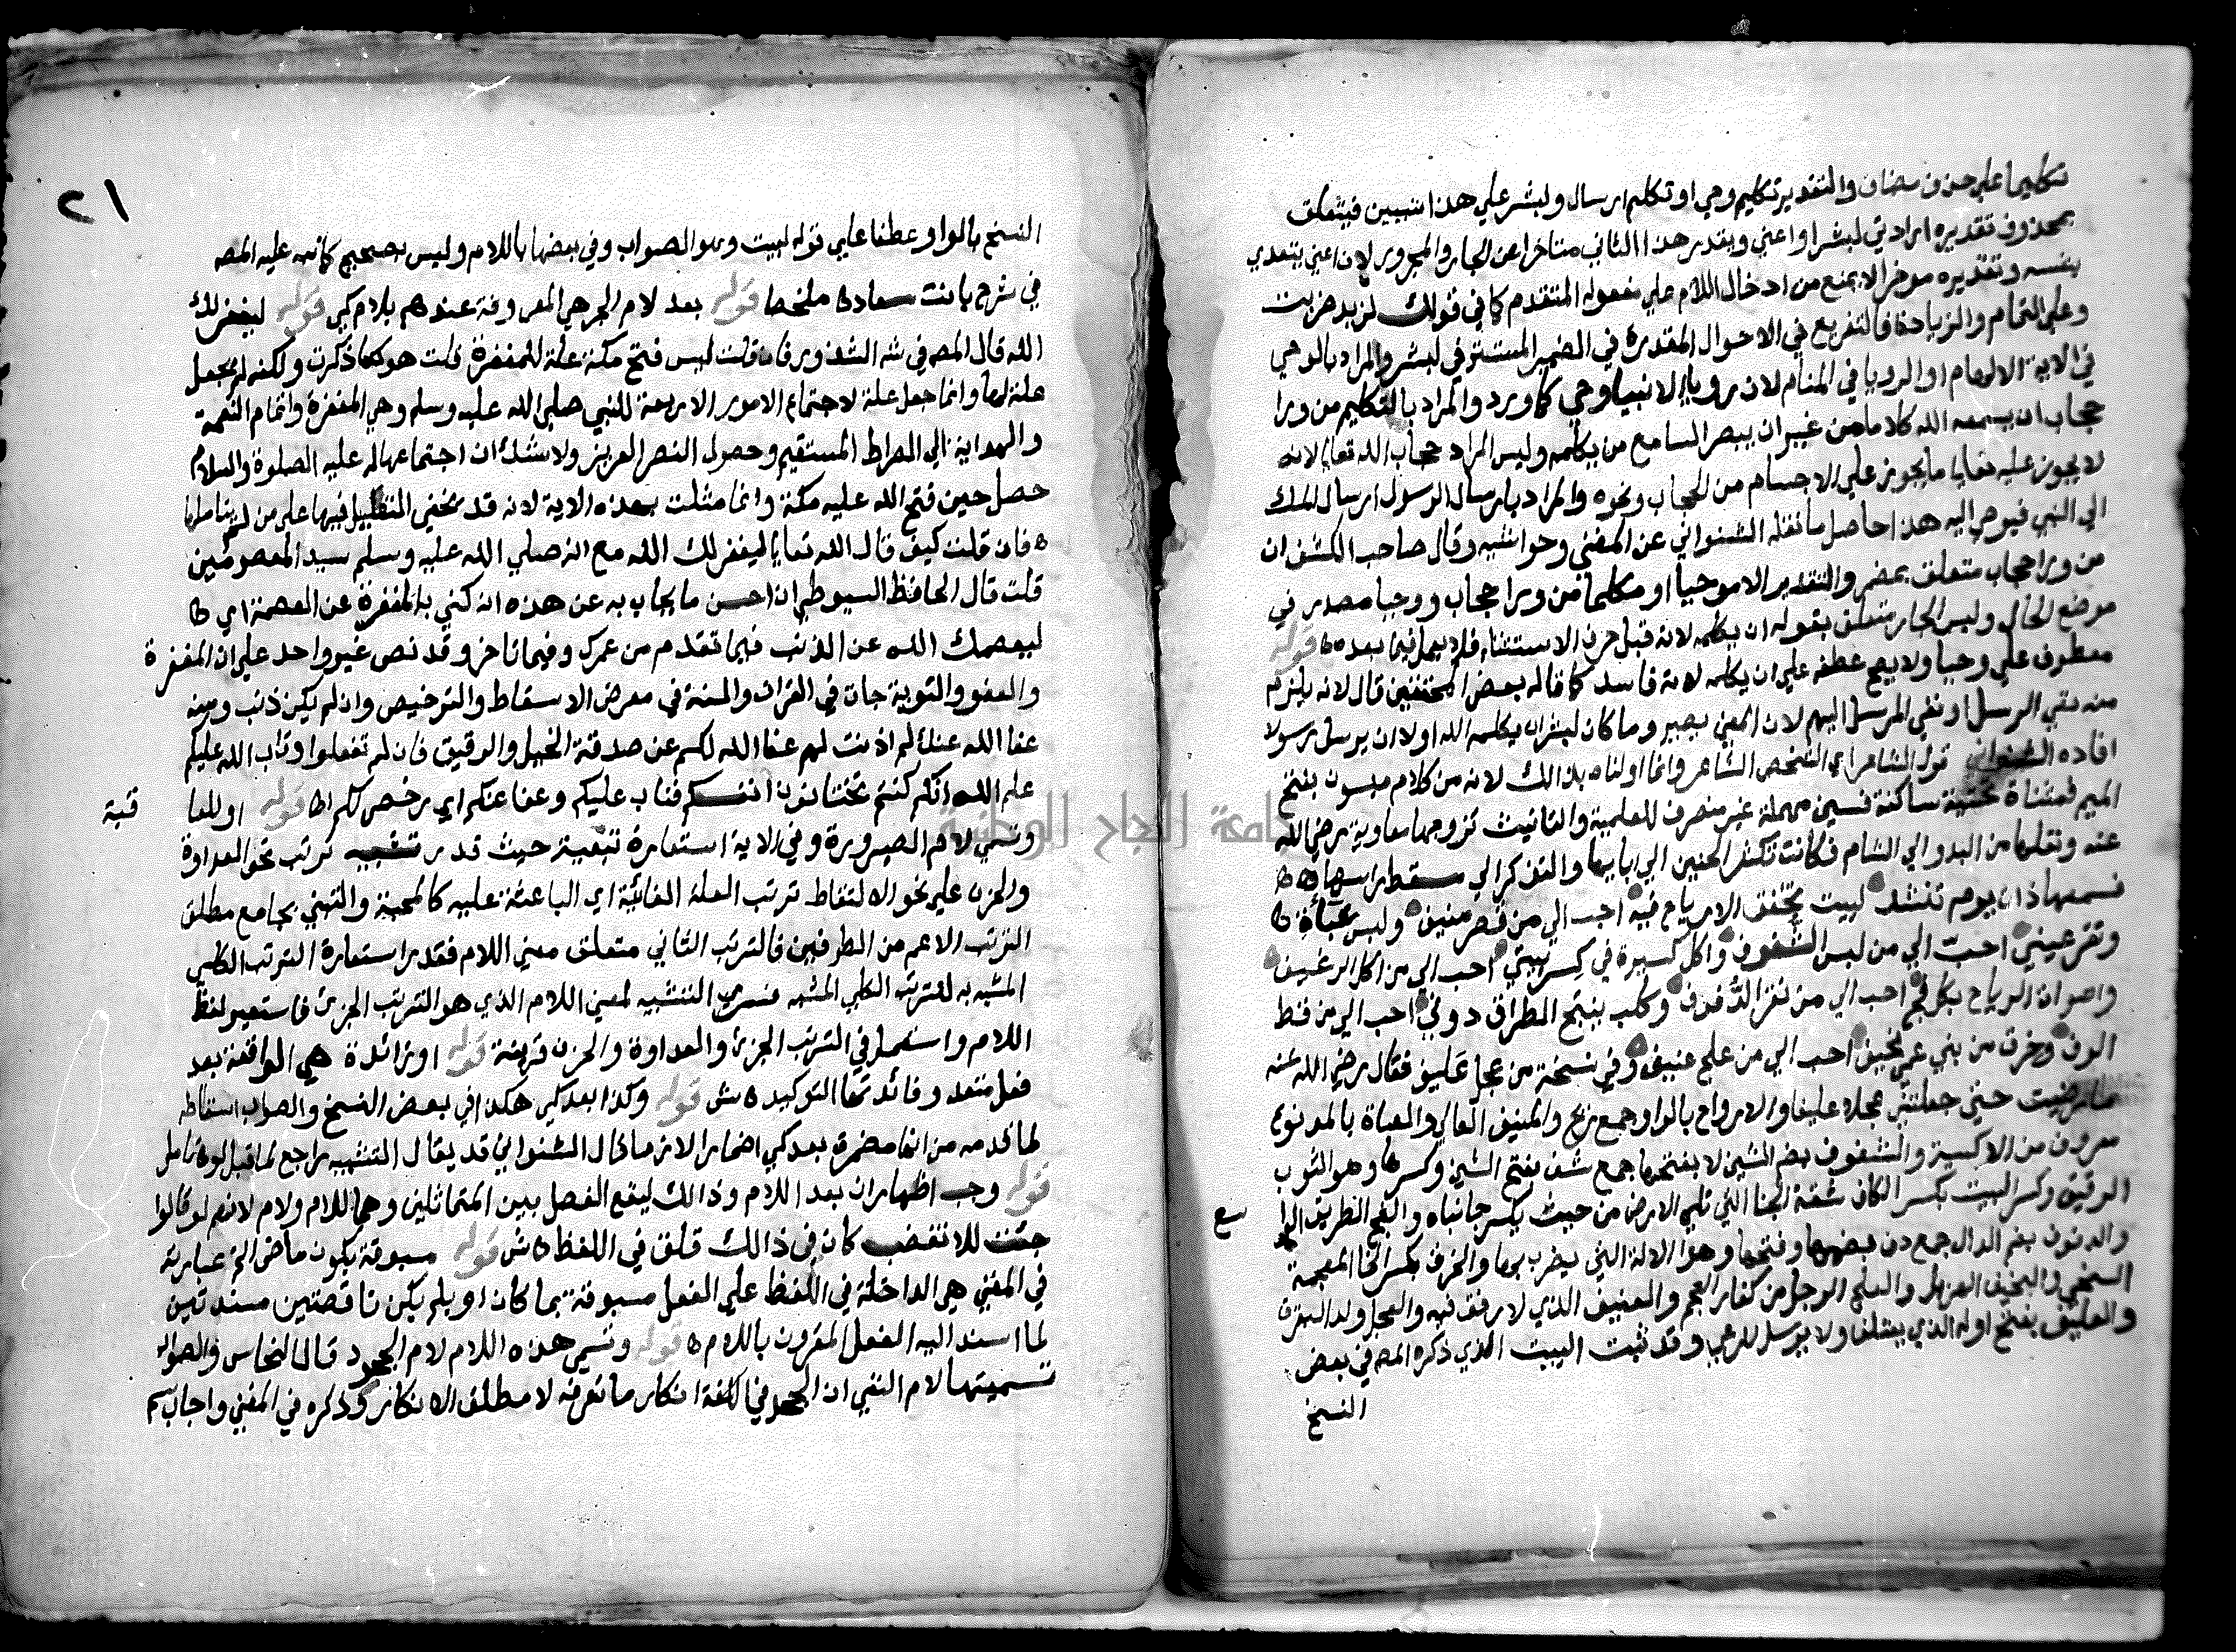 تكليما علي حذف مضاف والتقدير تكليم وحي او تكليم ارسال ولبشر علي هذا تبيين فيتعلق
بمحذوف تقديره ارادتي لبشر او اعني ويقدر هذا الثاني متاخرا عن الجار والمجرور لان اعني يتعدي
بنفسه وتقديره موخرا لا يمنع من ادخال اللام علي مفعوله المتقدم كما في قولك لزيد ضربت
وعلي التمام والزيادة فالتفريع في الاحوال المقدرة في الضمير المستتر في لبشر والمراد بالوحي
في الاية الالهام او الرويا في المنام لان رويا الانبياء وحي كما ورد والمراد بالتكليم من ورا
حجاب ان يسمعه الله كلاما من غير ان يبصر السامع من يكلمه وليس المراد حجاب الله تعالي لانه
لا يجوز عليه تعالي ما يجوز علي الاجسام من الحجاب ونحوه والمراد بارسال الرسول ارسال الملك
الي النبي فيوحي اليه هذا حاصل ما نقله الشنواني عن المغني وحواشيه وقال صاحب الكشف ان
من ورا حجاب متعلق بمضمر والتقدير الا موحيا او مكلما من ورا حجاب ووحيا مصدر في
موضع الحال وليس الجار متعلق بقوله ان يكلمه لانه قبل حرف الاستثناء فلا يعمل فيما بعده قوله
معطوف علي وحيا ولا يصح عطفه علي ان يكلمه لانه فاسد كما قاله بعض المحققين قال لانه يلزم
منه نفي الرسل او نفي المرسل اليهم لان المعني يصير وما كان لبشر ان يكلمه الله ولا ان يرسل رسولا
افاده الشنواني قوله الشاعر اي الشخص الشاعر وانما اولناه بذالك لانه من كلام ميسون بفتح
الميم فمثناة تحتية ساكنة فسين مهملة غير منصرف للعلمية والتانيث تزوجها معاوية رضي الله
عنه ونقلها من البدو الي الشام فكانت تكثر الحنين الي ابايها والتذكر الي مسقط راسها
فسمعها ذات يوم تنشد لبيت تخفق الارياح فيه احب الي من قصر منيف ولبس عباءة
وتقر عيني احب الي من لبس الشفوف واكل كسيرة في كسر بيتي احب الي من اكل الرغيف
واصوات الرياح بكل فج احب الي من نقر الدفوف وكلب ينبح الطراق دوني احب الي من قط
الوف وخرق من بني عمي نحيف احب الي من علج عنيف وفي نسخة من عجل عليف فقال رضي الله عنه
ما رضيت حتي جعلتني عجلا عليفا والارواح بالواو جمع ريح والمنيف العالي والعباة بالمد نوع
معروف من الاكسية والشفوف بضم الشين لا بفتحها جمع شف بفتح الشين وكسرها وهو الثوب
الرقيق وكسر البيت بكسر الكاف شقة الخبا التي تلي الارض من حيث يكسر جانباه والفج الطريق الواسع
والدفوف بضم الدال جمع دف بضمها وفتحها وهو الالة التي يضرب بها والخرق بكسر الخا المعجمة
السخي والنحيف المهزول والعلج الرجل من كفار العجم والعنيف الذي لا رفق فيه والعجل ولد البقرة
والعليف بفتح اوله الذي يعلف ولا يرسل للرعي وقد ثبت البيت الذي ذكره المص في بعض
النسخ
٢١
النسخ بالواو عطفا علي قوله لبيت وهو الصواب وفي بعضها باللام وليس بصحيح كما نبه عليه المص
في شرح بانت سعاد ه ملخصا قوله بعد لام الجر هي المعروفة عندهم بلام كي قوله ليغفر لك
الله قال المص في شه الشذور فان قلت ليس فتح مكة علة للمغفرة قلت هو كما ذكرت ولكنه لم يجعل
علة لها وانما جعل علة لاجتماع الامور الاربعة للنبي صلي الله عليه وسلم وهي المغفرة واتمام النعمة
والهداية الي الصراط المستقيم وحصول النصر العزيز ولا شك ان اجتماعها له عليه الصلوة والسلام
حصل حين فتح الله عليه مكة وانما مثلت بهذه الاية لانه قد يخفي التعليل فيها علي من لم يتاملها
ه فان قلت كيف قال الله تعالي ليغفر لك الله مع انه صلي الله عليه وسلم سيد المعصومين
قلت قال الحافظ السيوطي ان احسن ما يجاب به عن هذه انه كني بالمغفرة عن العصمة اي
ليعصمك الله عن الذنب فيما تقدم من عمرك وفيما تاخر وقد نص غير واحد علي ان المغفرة
والعفو والتوبة جات في القران والسنة في معرض الاسقاط والترخيص وان لم يكن ذنب ومنه
عفا الله عنك لم اذنت لهم عفا الله لكم عن صدقة الخيل والرقيق فان لم تفعلوا وتاب الله عليكم
علم الله انكم كنتم تختانون انفسكم فتاب عليكم وعفا عنكم اي رخص لكم اه قوله او للعا قبة
وتسمي لام الصيرورة وفي الاية استعارة تبعية حيث قدر تشبيه ترتب نحو العداوة
والحزن علي نحو الالتقاط ترتب العلة الغائية اي الباعثة عليه كالمحبة والتبني بجامع مطلق
الترتب الاعم من الطرفين فالترتب الثاني متعلق معني اللام فقدر استعارة الترتب الكلي
المشبه به للترتب الكلي المشبه فسري التشبيه لمعني اللام الذي هو الترتب الجزئ فاستعير لفظ
اللام واستعمل في الترتب الجزئ والعداوة والحزن قرينة قوله او زائدة هي الواقعة بعد
فعل متعد وفائدتها التوكيد ه ش قوله وكذا بعد كي هكذا في بعض النسخ والصواب اسقاطه
لما قدمه من انها مضمرة بعد كي اضمارا لازما قال الشنواني قد يقال التشبيه راجع لما قبل لو تامل
قوله وجب اظهار ان بعد اللام وذالك ليقع الفصل بين المتماثلين وهما اللام ولام لانهم لو قالوا
جئت للا تغضب كان في ذالك قلق في اللفظ ه ش قوله مسبوقة بكون ماض الخ عبارته
في المغني هي الداخلة في اللفظ علي الفعل مسبوقة بما كان او بلم يكن ناقصتين مسندتين
لما اسند اليه الفعل المقرون باللام ه قوله وتسمي هذه اللام لام الجحود قال النحاس والصواب
تسميتها لام النفي ان الجحد في اللغة انكار ما تعرفه لا مطلق الانكار وذكره في المغني واجاب